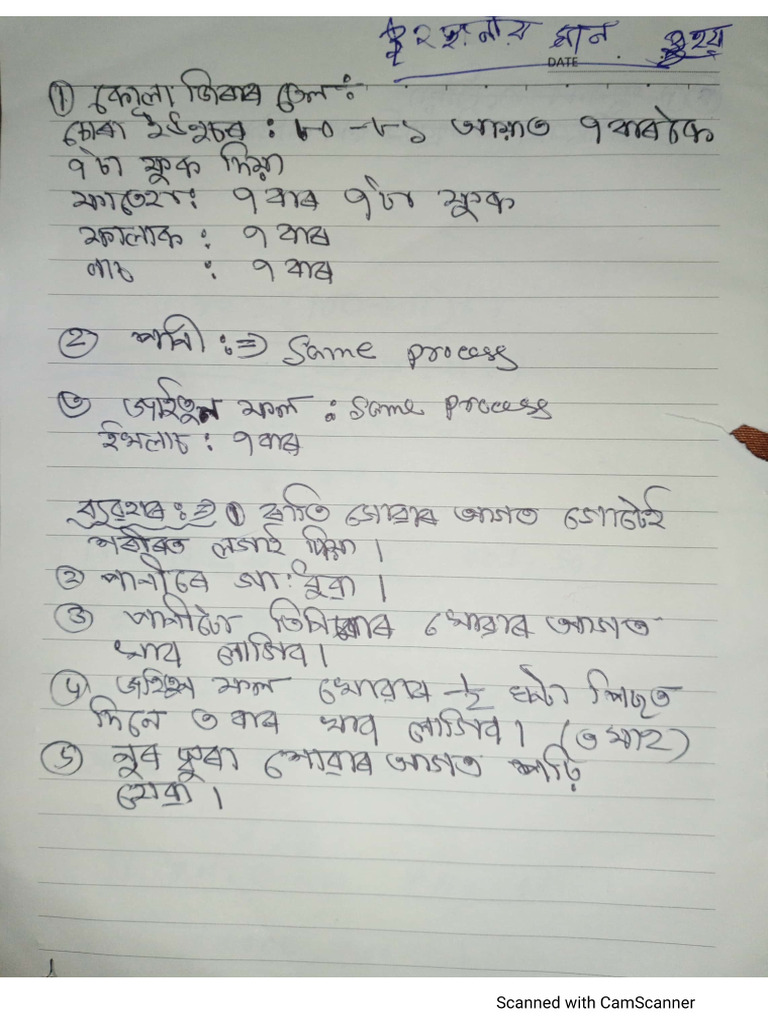 DATE
① কোলা জিৰাৰ তেল :
চোৰা ইউনুচৰ : ৮০-৮১ আয়াত ৭ বাৰকৈ
৭ টা ফুক দিয়া
ফাতেহা : ৭ বাৰ ৭ টা ফুক
ফালাক : ৭ বাৰ
নাচ : ৭ বাৰ
② পানী :⇒ Same process
③ জাইতুন ফল : Same process
ইখলাচ : ৭ বাৰ
ব্যৱহাৰ :⇒ ① ৰাতি শোৱাৰ আগত গোটেই
শৰীৰত লগাই দিয়া ।
② পানীৰে গা ধুৱা ।
③ পানীটো তিনিবাৰ খোৱাৰ আগত
খাব লাগিব ।
④ জাইতুন ফল খোৱাৰ ½ ঘণ্টা পিছত
দিনে ৩ বাৰ খাব লাগিব । (৩ মাহ)
⑤ নুৰ চুৰা শোৱাৰ আগত পাঢ়ি
Scanned with CamScanner